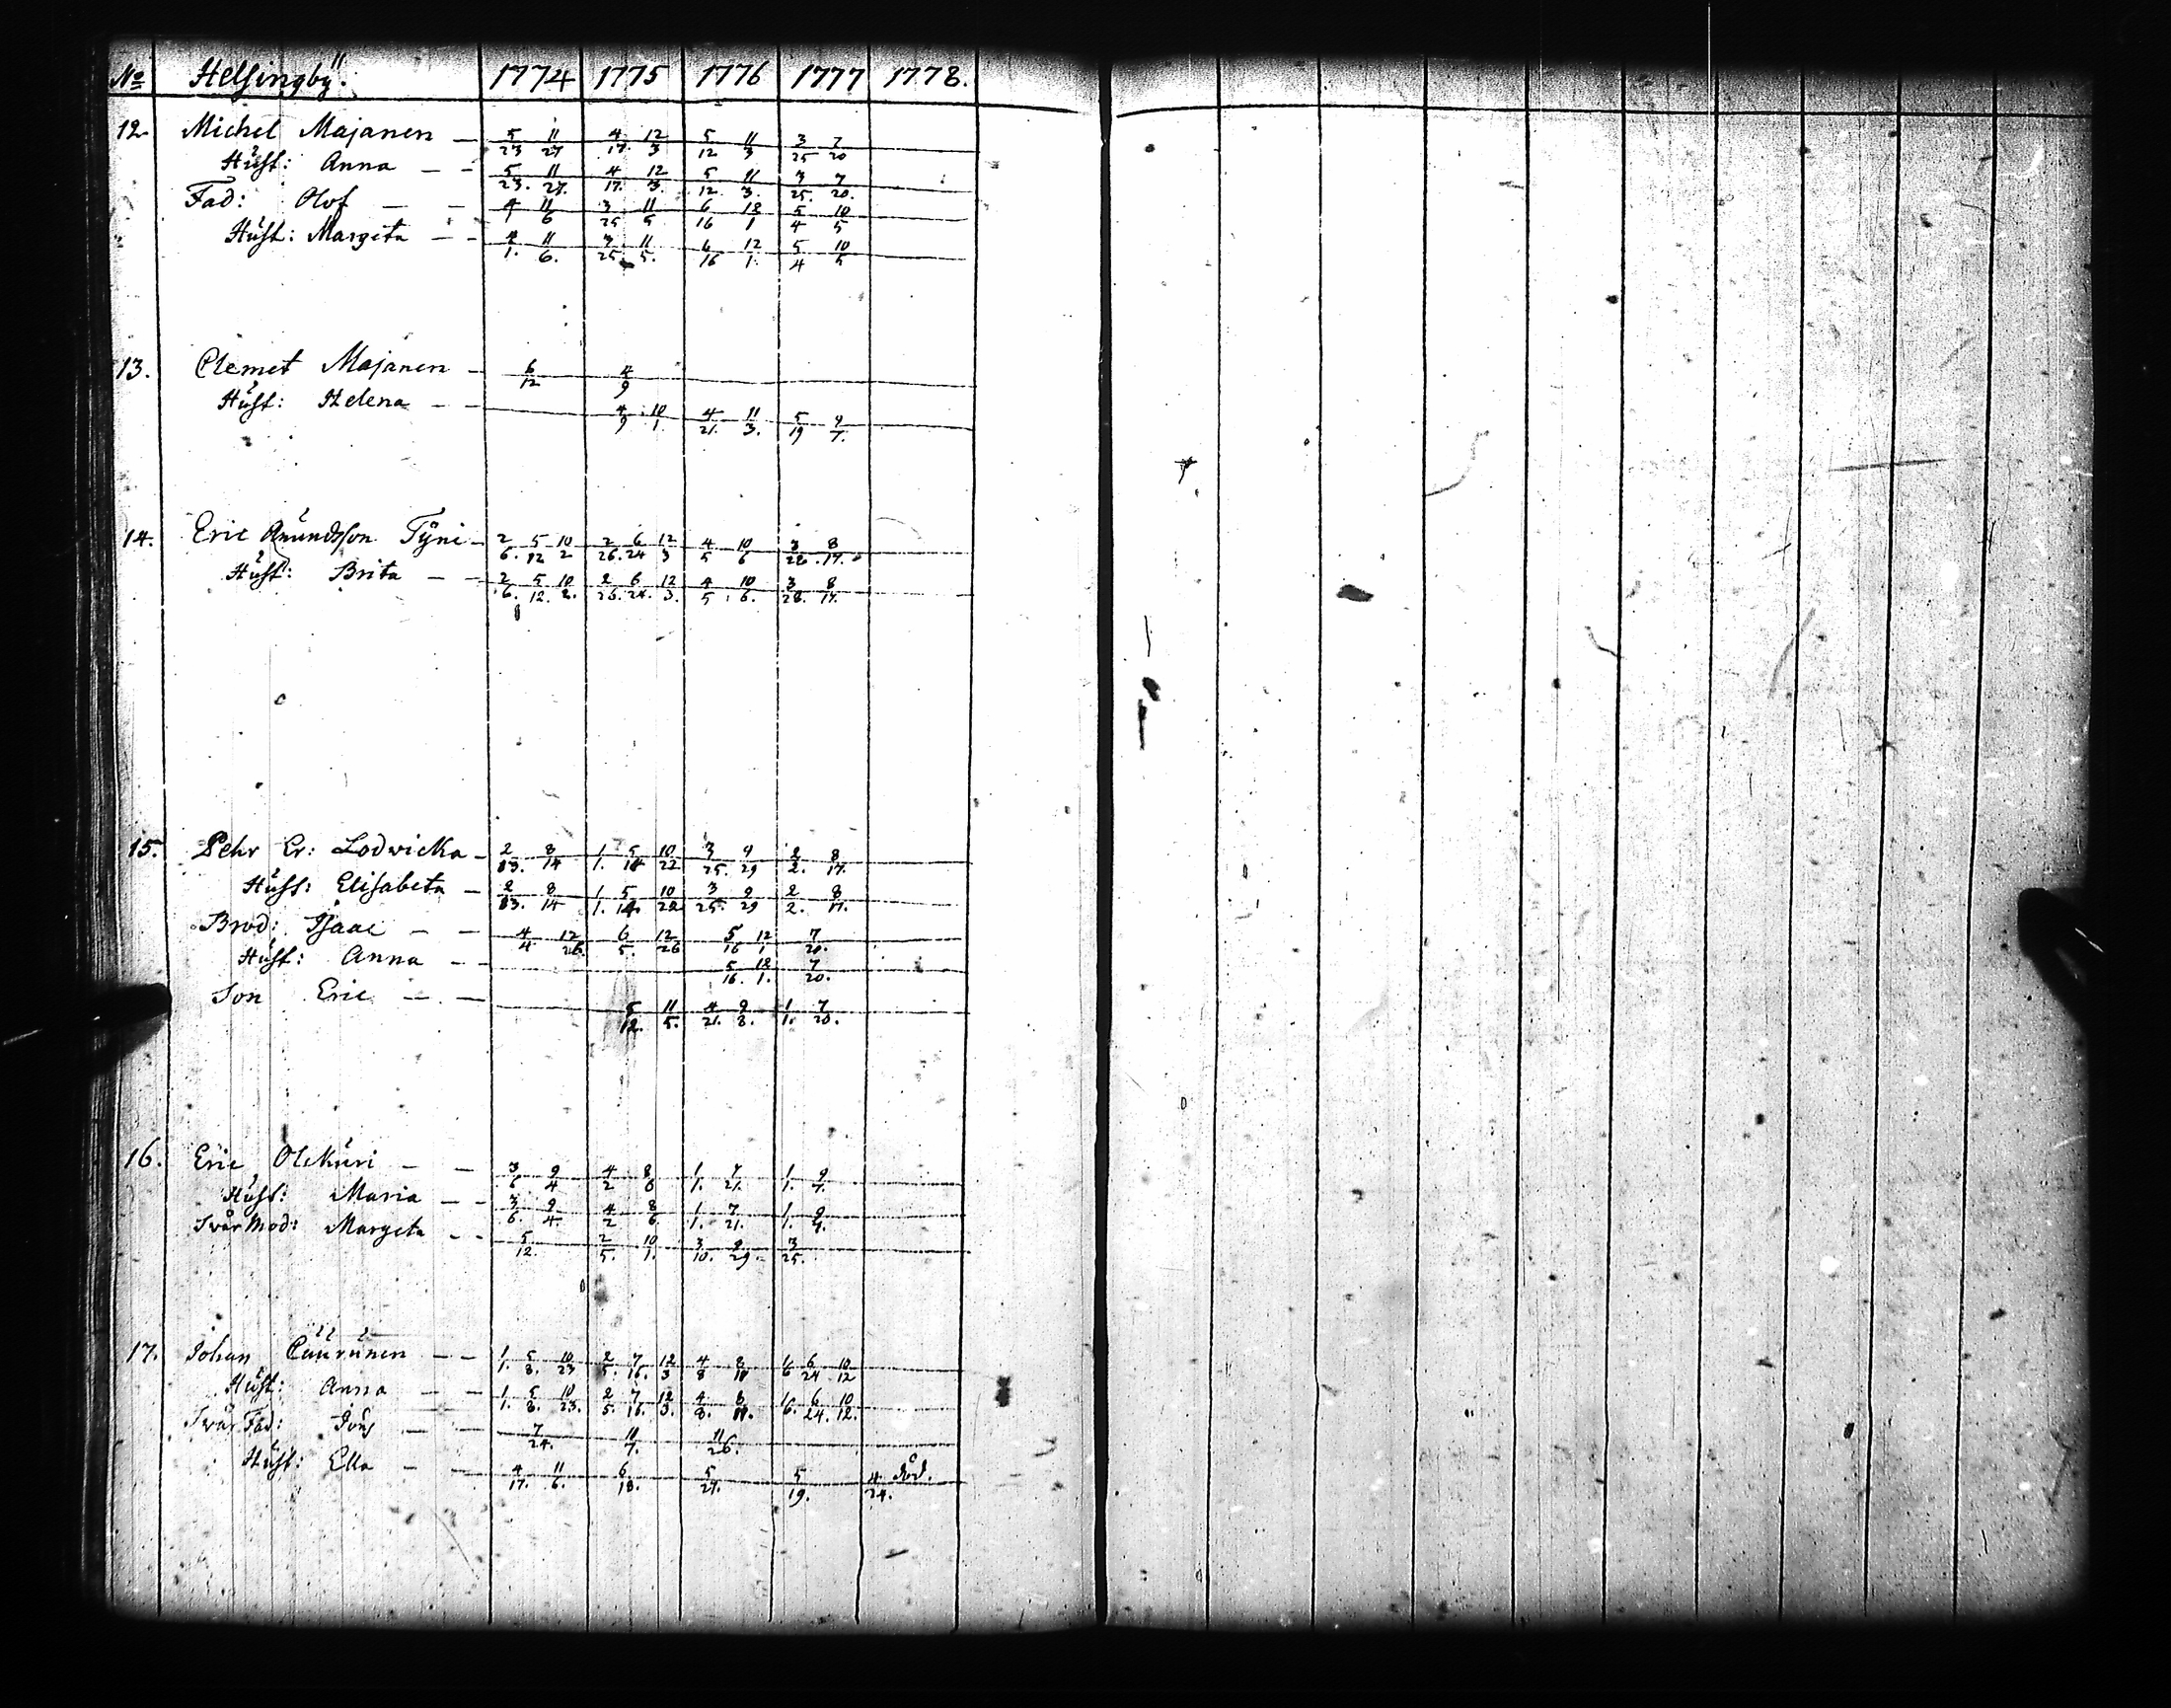 No Helsingby. 1774 1775 1776 1777 1778.
12. Michel Majanen — 5/23 11/27 4/17 12/3 5/12 11/3 3/25 7/20
Hust: Anna — — 5/23. 11/27. 4/17. 12/3. 5/12. 11/3. 3/25. 7/20.
Fad: Olof — — 4/1 11/6 3/25 11/5 6/16 12/1 5/4 10/5
Hust: Margeta — — 4/1. 11/6. 3/25. 11/5. 6/16 12/1. 5/4 10/5
13. Clemet Majanen — 6/12 4/9
Hust: Helena — — 4/9 10/1 4/21. 11/3. 5/19 9/7.
14. Eric Amundsson Tÿni — 2/6. 5/12 10/2 2/26. 6/24 12/3 4/5 10/6 3/28. 8/17.
Hust: Brita — — 2/6. 5/12. 10/2. 2/26. 6/24. 12/3. 4/5 10/6. 3/28. 8/17.
15. Pehr Er: Lodwicka — 2/13. 8/14 1/1. 5/14 10/22 3/25. 9/29 2/2. 8/17.
Hust: Elisabeta — 2/13. 8/14 1/1. 5/14. 10/22 3/25. 9/29 2/2. 8/17.
Brod: Isaac — — 4/4. 12/26. 6/5. 12/26 5/16 12/1 7/20.
Hust: Anna — — 5/16. 12/1. 7/20.
Son Eric — — 5/12. 11/5. 4/21. 9/8. 1/1. 7/20.
16. Eric Olckuri — — 3/6 9/4 4/2 8/6 1/1. 7/21. 1/1. 9/7.
Hust: Maria — — 3/6. 9/4 4/2 8/6. 1/1. 7/21. 1/1. 9/7.
Svär Mod: Margeta — — 5/12. 2/5. 10/1. 3/10. 9/29. 3/25.
17. Johan Cuurunen — — 1/1. 5/8. 10/23 2/5. 7/16. 12/3 4/8 8/11 1/6 6/24 10/12
Hust: Anna — — 1/1. 5/8. 10/23. 2/5. 7/16. 12/3. 4/8. 8/11. 1/6. 6/24. 10/12.
Svär Fad: Jöns — — 7/24. 11/7. 11/26.
Hust: Ella — — 4/17. 11/6. 6/18. 5/27. 5/19. 4/24. död.